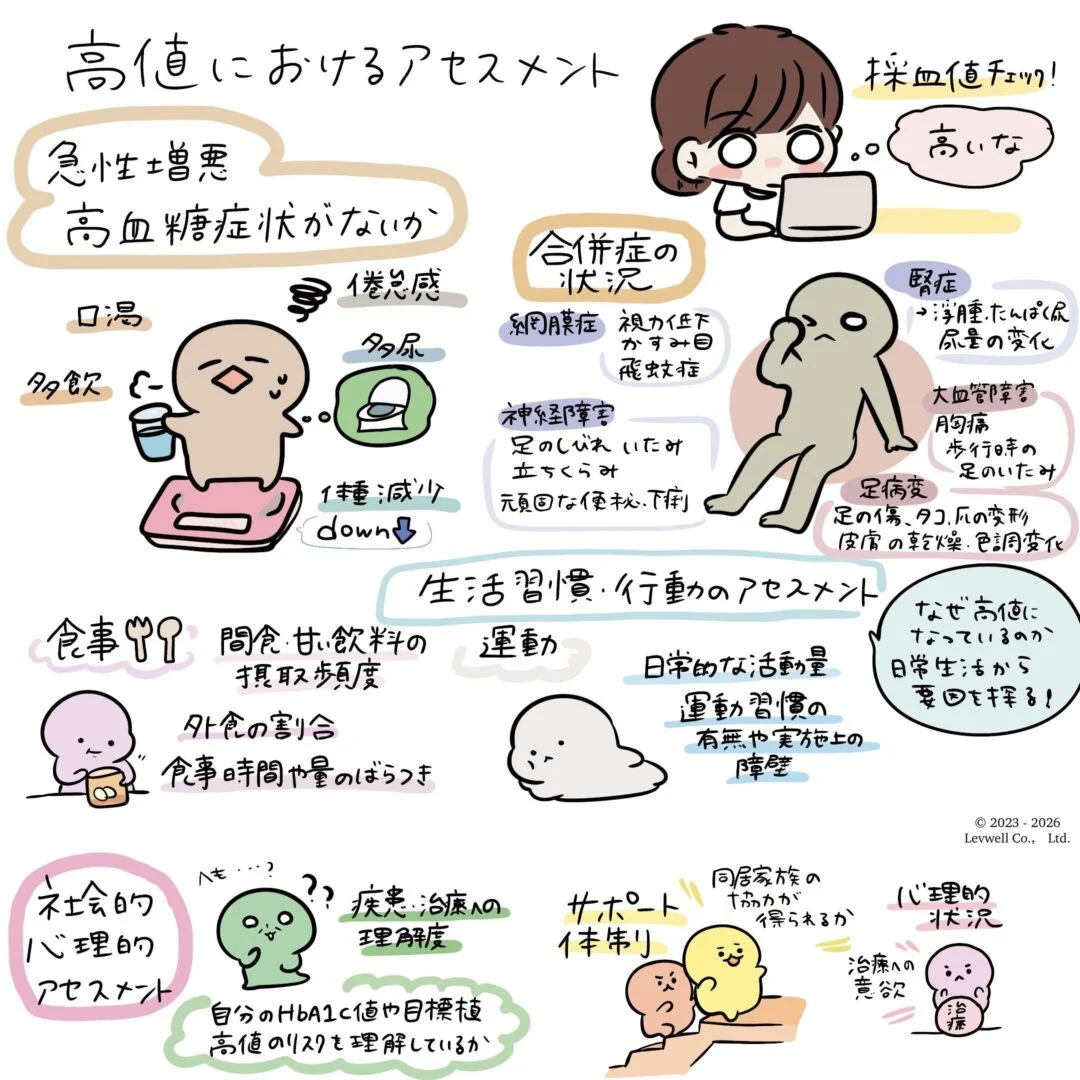 高値におけるアセスメント
採血値チェック!
高いな
急性増悪
高血糖症状がないか
口渇
倦怠感
多飲
多尿
体重減少
down
合併症の
状況
網膜症
視力低下
かすみ目
飛蚊症
神経障害
足のしびれ いたみ
立ちくらみ
頑固な便秘、下痢
腎症
→浮腫、たんぱく尿
尿量の変化
大血管障害
胸痛
歩行時の
足のいたみ
足病変
足の傷、タコ、爪の変形
皮膚の乾燥・色調変化
生活習慣・行動のアセスメント
なぜ高値に
なっているのか
日常生活から
要因を探る!
食事
間食・甘い飲料の
摂取頻度
外食の割合
食事時間や量のばらつき
運動
日常的な活動量
運動習慣の
有無や実施上の
障壁
© 2023 - 2026
Levwell Co., Ltd.
社会的
心理的
アセスメント
へも・・・・?
??
疾患・治療への
理解度
自分のHbA1c値や目標植
高値のリスクを理解しているか
サポート
体制り
同居家族の
協力が
得られるか
心理的
状況
治療への
意欲
治療